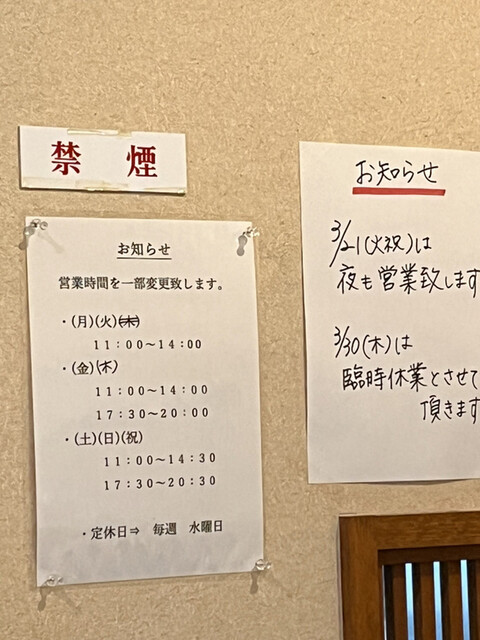 禁 煙
お知らせ
営業時間を一部変更致します。
・(月)(火)(木)
11:00～14:00
・(金)(木)
11:00～14:00
17:30～20:00
・(土)(日)(祝)
11:00～14:30
17:30～20:30
・定休日⇒ 毎週 水曜日
お知らせ
3/21(火祝)は
夜も営業致します
3/30(木)は
臨時休業とさせて
頂きます